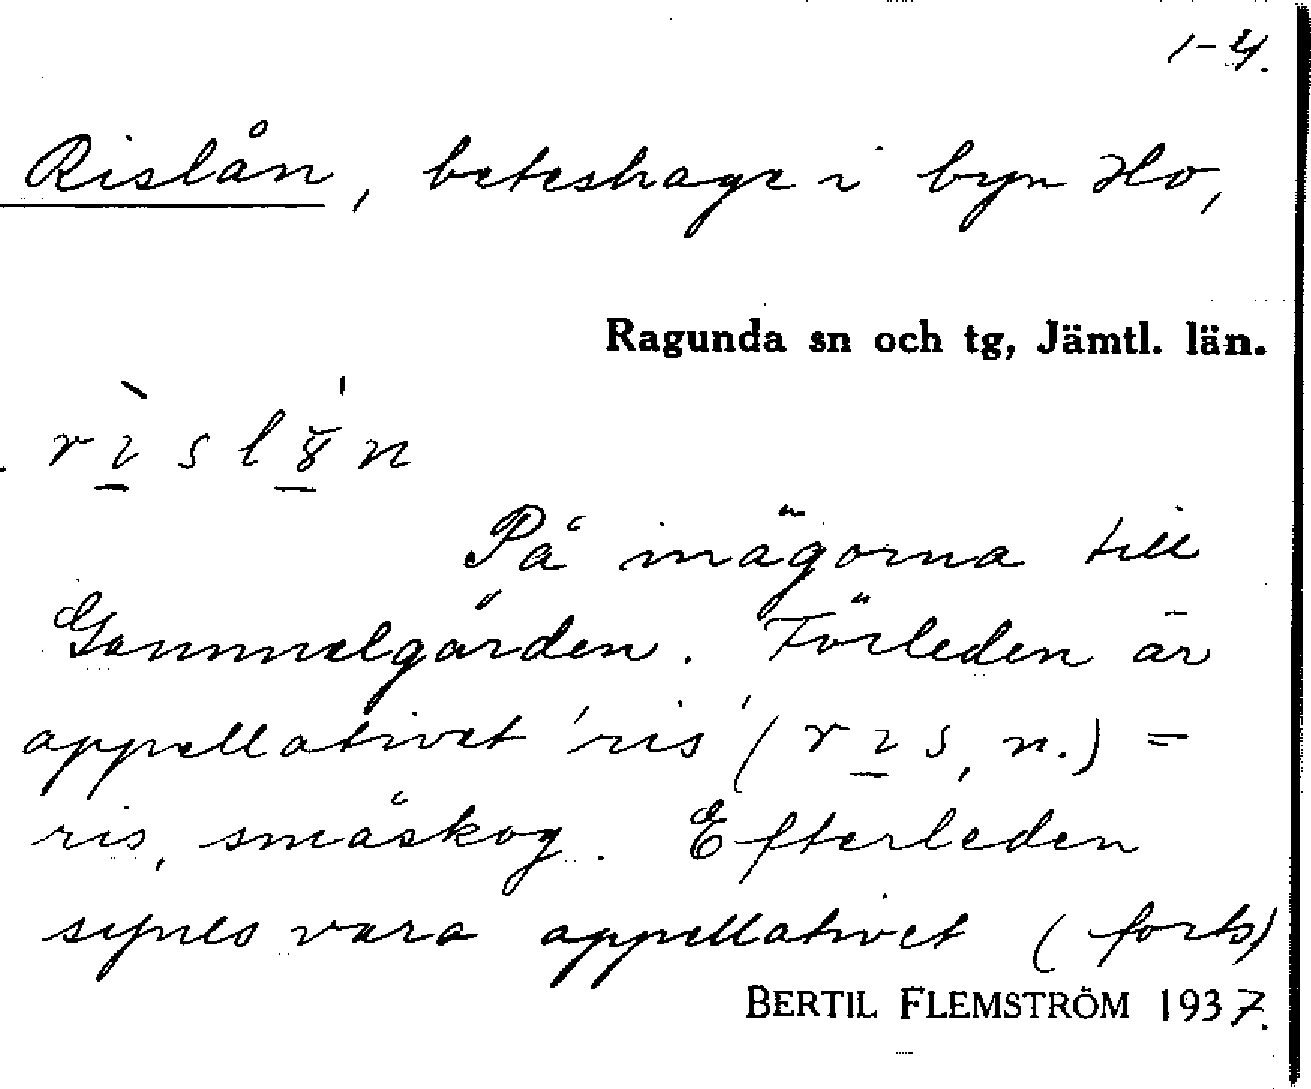 1-4.
Rislån, beteshage i byn Ho,
Ragunda sn och tg, Jämtl. län.
På inägorna till
Gammelgården. Förleden är
appellativet 'ris' (ris, n.) =
ris, småskog. Efterleden
synes vara appellativet (forts)
BERTIL FLEMSTRÖM 1937.